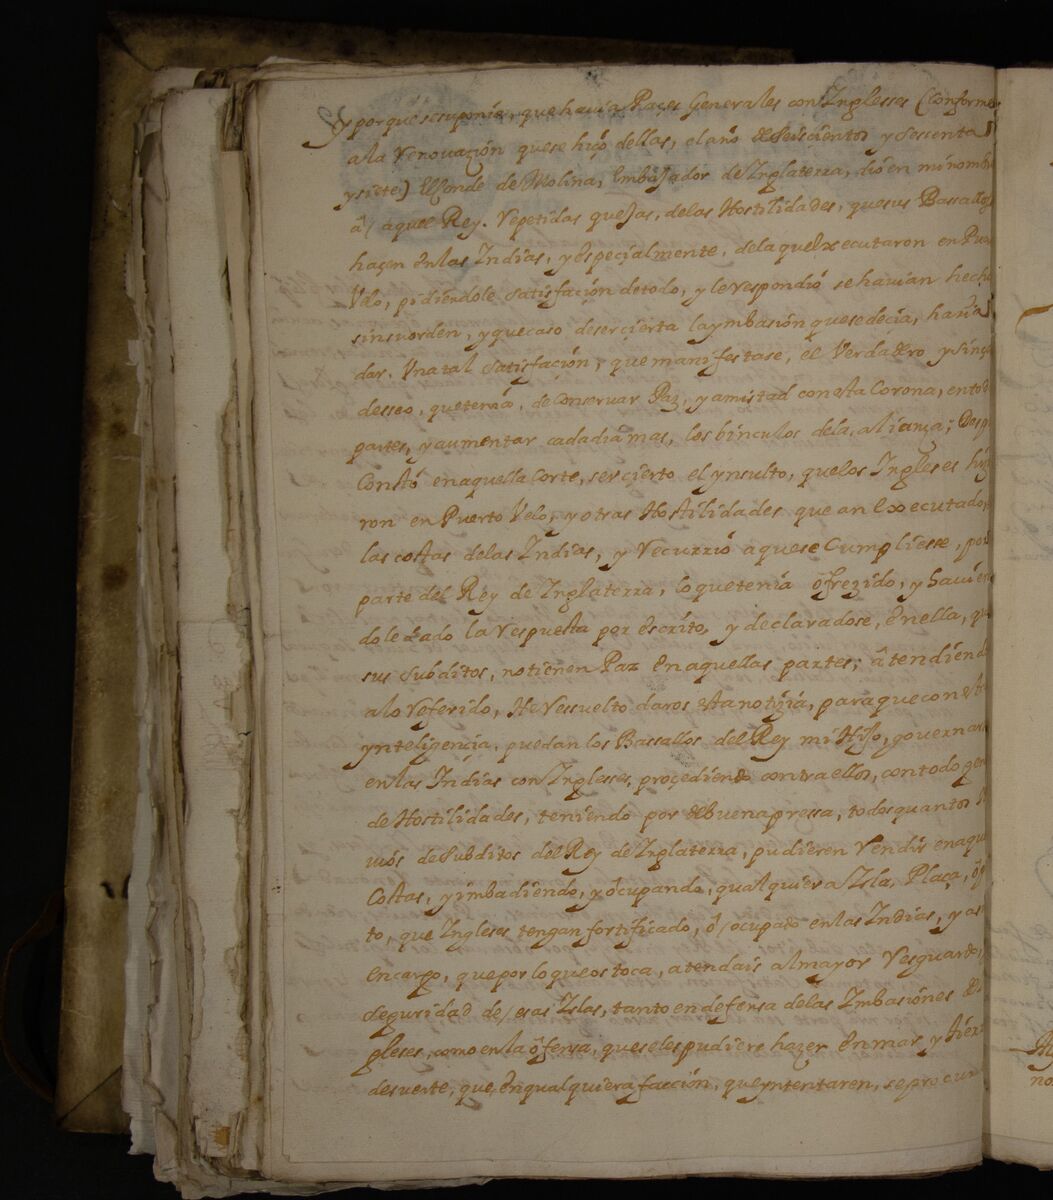 y porque se suponia, que hauia Pazes Generales con Inglesses (Conforme
a la Renouazión que se hizo dellas, el año de Seiscientos y Sessenta
y siete) El Conde de Molina, Embajador de Inglaterra, dió en mi nombre
â aquel Rey. Repetidas quejas, de las Hostilidades, que sus Bassallos
hazen en las Indias, y especialmente, de la que executaron en Puer
Velo, pidiendole satisfación de todo, y le respondió se hauian hecho
sin su orden, y que caso de ser cierta la ymbasión que se decia, haria
dar. Una tal satisfación, que manifestase, el Verdadero y sing
desseo, que tenia, de Conseruar Paz, y amistad con esta Corona, en tod
partes, y aumentar cada dia mas, los binculos de la aliança; Desp
Constó en aquella Corte, ser cierto el ynsulto, que los Ingleses hiz
ron en Puerto Velo, y otras Hostilidades que an executado,
las costas de las Indias, y Recurrió a que se Cumpliesse, por
parte del Rey de Inglaterra, lo que tenia ôfrezido, y hauien
dole dado la Respuesta por escrito, y declaradose, en ella, que
sus subditos, no tienen Paz en aquellas partes; âtendiendo
a lo Referido, He Ressuelto daros esta notizia, para que con esta
ynteligencia, puedan los Bassallos del Rey mi Hijo, gouernars
en las Indias con Inglesses, procediendo contra ellos, con todo gen
de Hostilidades, teniendo por de buena pressa, todos quantos N
uiós de Subditos del Rey de Inglaterra, pudieren Rendir en aque
Costas, y imbadiendo, y ôcupando, qualquiera Isla, Plaça, ô p
to, que Ingleses tengan fortificado, ô ocupado en las Indias, y as
encargo, que por lo que os toca, atendais al mayor Resguardo,
seguridad de esas Islas, tanto en defensa de las Imbasiónes de
gleses, como en la ôfensa, que se les pudiere hazer en mar y tier
de suerte, que en qualquiera facción, que yntentaren, se procur